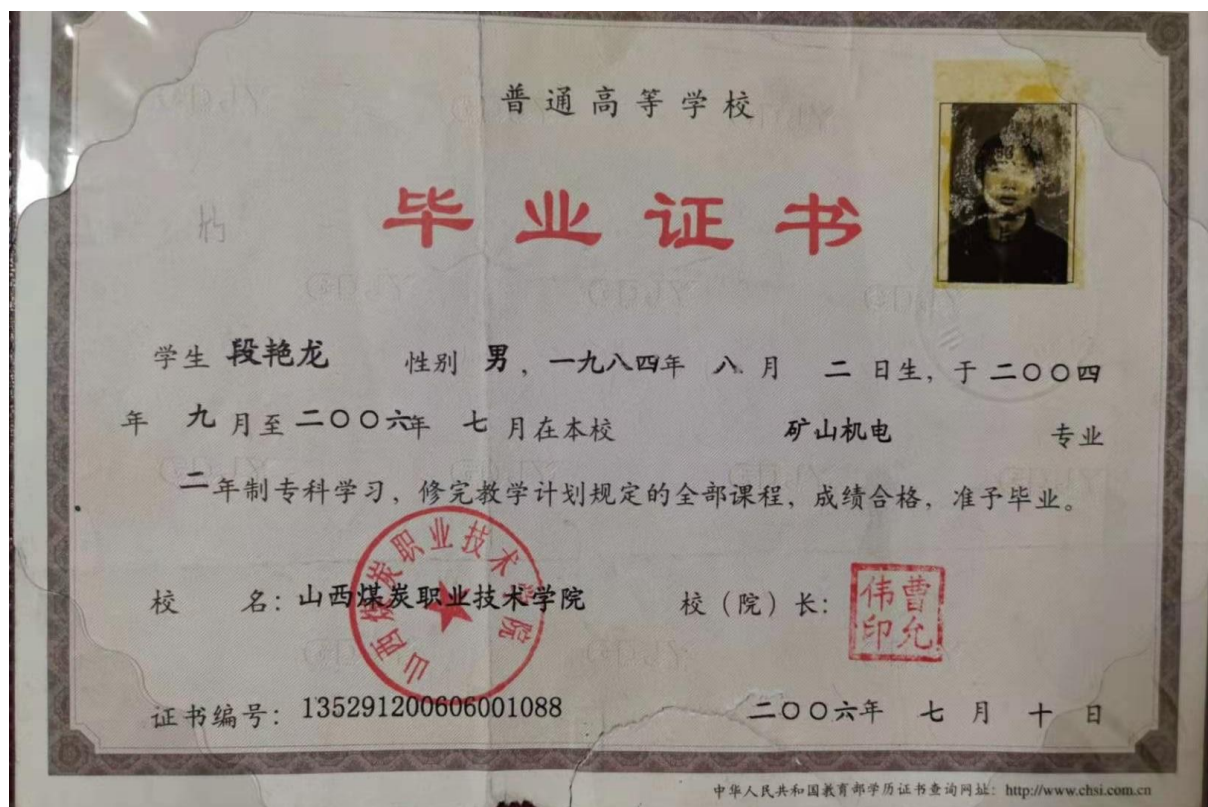 普通高等学校
毕业证书
学生 段艳龙 性别 男，一九八四年 八 月 二 日生，于 二〇〇四
年 九 月至 二〇〇六年 七 月在本校 矿山机电 专业
二年制专科学习，修完教学计划规定的全部课程，成绩合格，准予毕业。
山西煤炭职业技术学院
校 名：山西煤炭职业技术学院 校（院）长：
曹允伟印
证书编号：135291200606001088 二〇〇六年 七 月 十 日
中华人民共和国教育部学历证书查询网址：http://www.chsi.com.cn